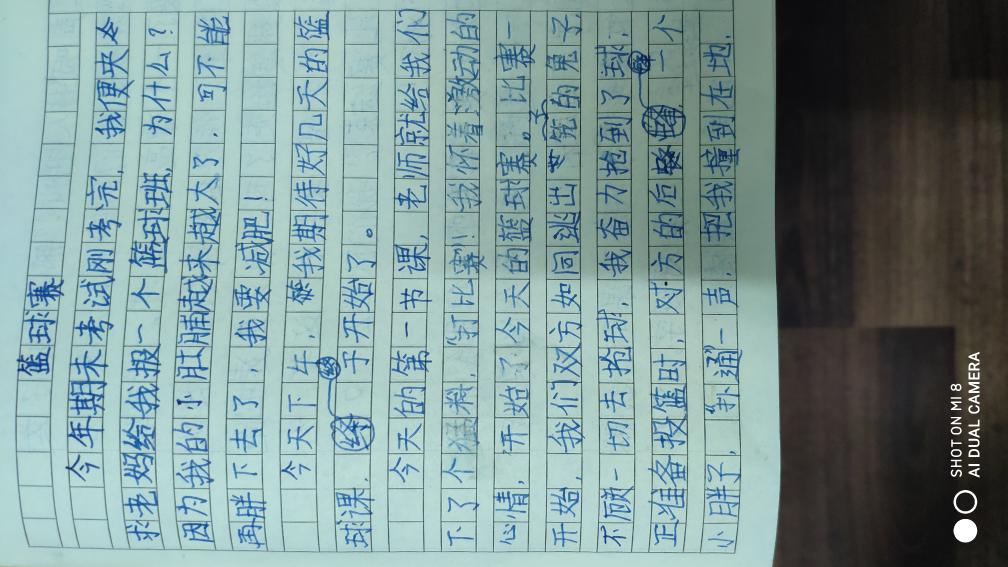 篮球赛
今年期末考试刚考完,我便央
求老妈给我报一个篮球班,为什么?
因为我的小肚腩越来越大了,可不能
再胖下去了,我要减肥!
今天下午,我期待好几天的篮
球课,终于开始了。
今天的第一节课,老师就给我们
下了个猛料,“打比赛”!我怀着激动的
心情,开始了今天的篮球赛。比赛一
开始,我们双方如同逃出笼子的兔子,
不顾一切去抢球,我奋力抢到了球,
正准备投篮时,对方的后卫,一个
小胖子,“扑通”一声,把我撞到在地,
SHOT ON MI 8
AI DUAL CAMERA